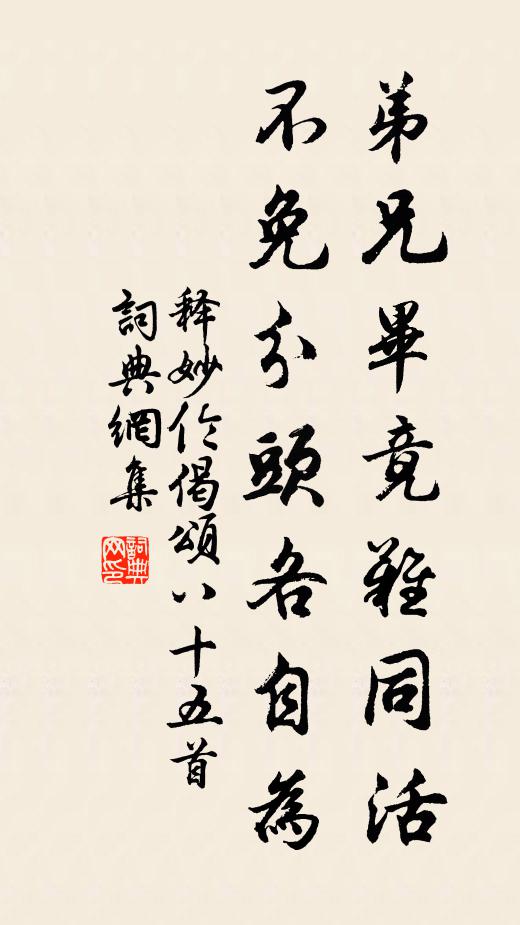 弟兄畢竟難同活
不免分頭各自為
释妙伦偈頌八十五首
詞典網集
詞典网印